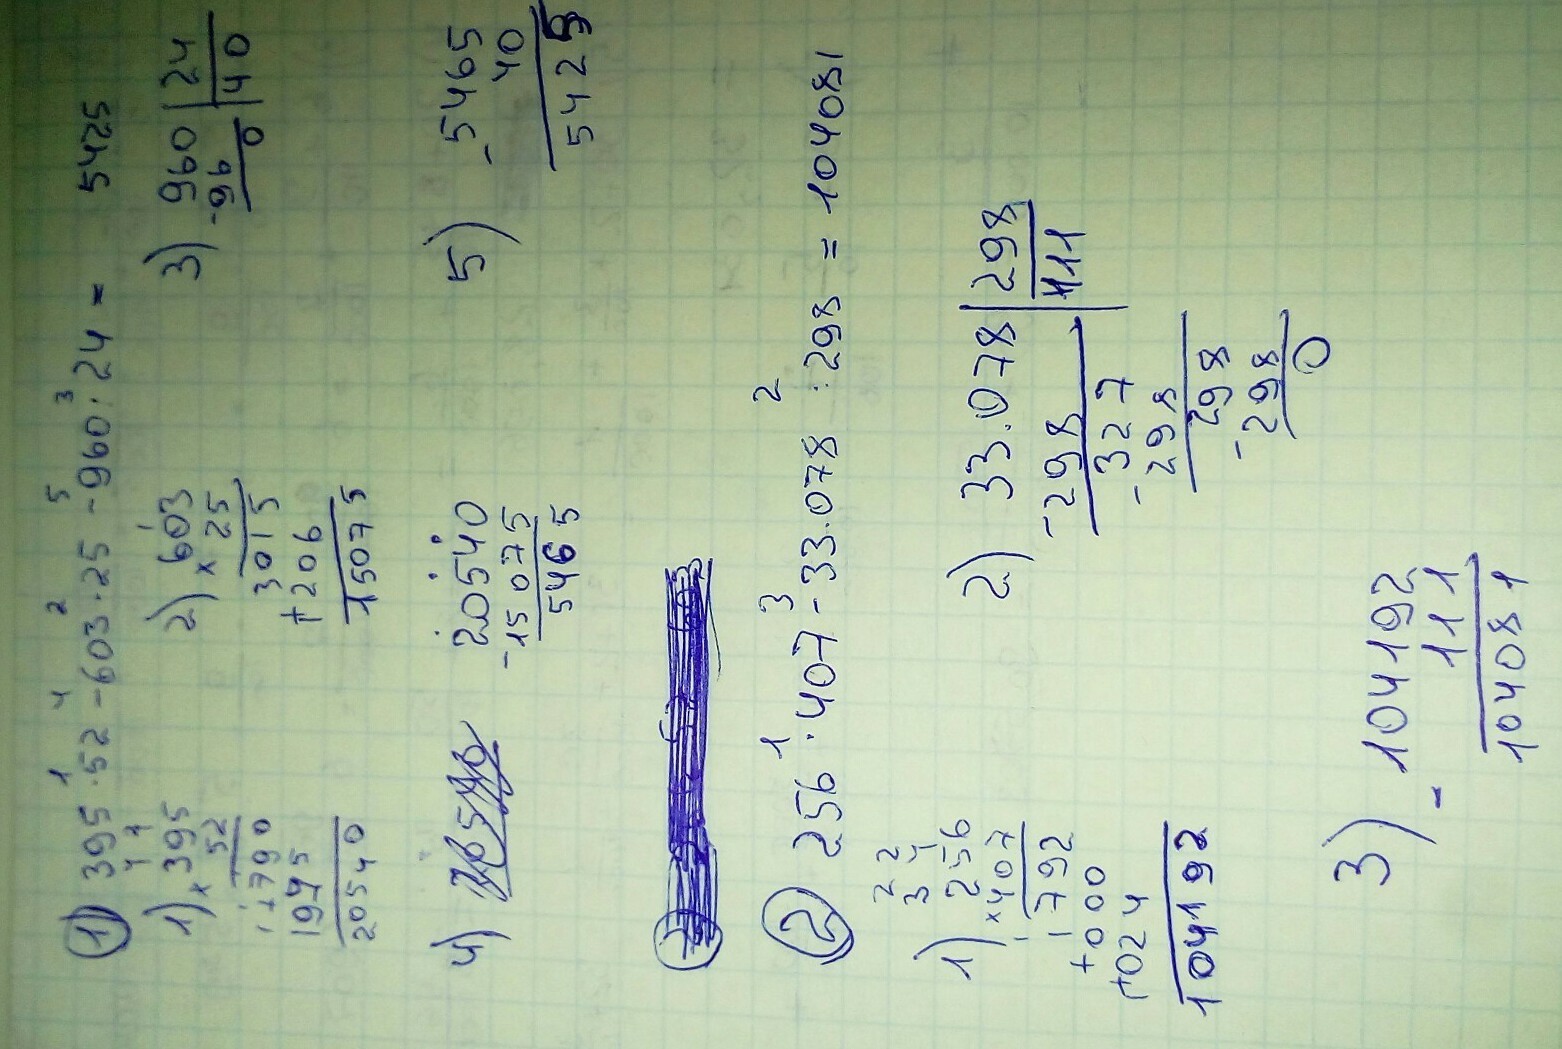 1) 395 · 52 - 603 · 25 - 960 : 24 = 5425
1 4 2 5 3
1) 395
× 52
790
1975
20540
2) 603
× 25
3015
+ 206
15075
3) 960 | 24
- 96 | 40
0
4) 20540
- 15075
5465
5) - 5465
40
5425
2) 256 · 407 - 33.078 : 298 = 104081
1 3 2
1) 2 2
3 4
256
× 407
1792
+ 000
+ 1024
104192
2) 33.078 | 298
- 298 | 111
- 327
- 298
298
- 298
0
3) - 104192
111
104081